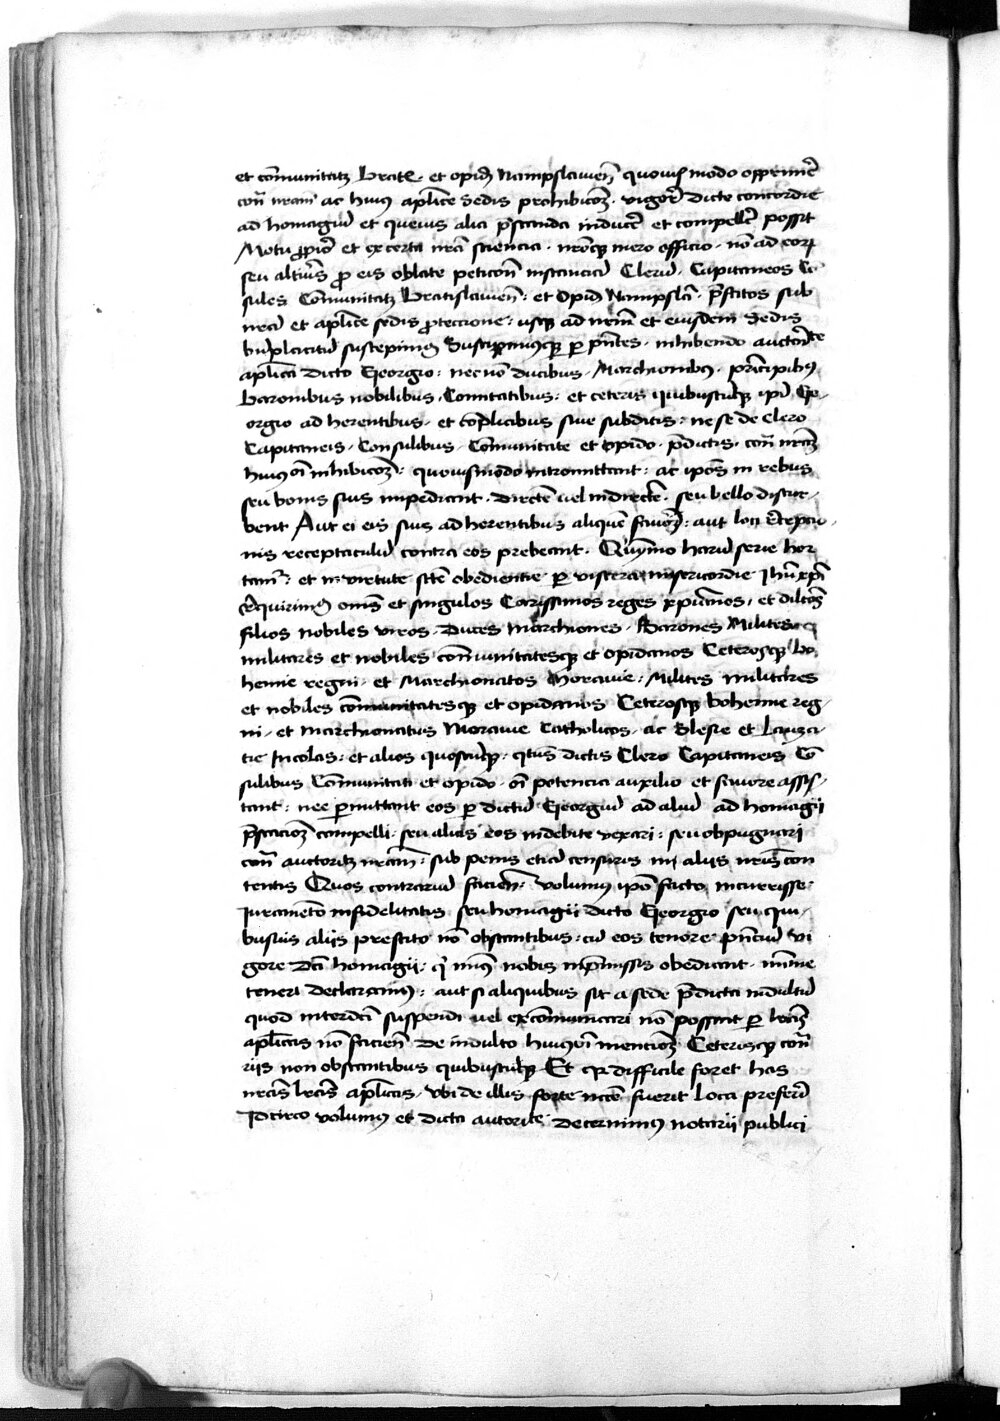 et cōmunitatꝫ Wratꝭ et opid Nampslauieñ quouis modo opprimē
con̄ nram̄ ac huiꝰ aplice Sedis prohibicoꝫ vigore dicte concordie
ad homagiū et queuis alia p̄standa inducē et compellē possit
Motu ꝓprio et ex certa nr̄a sciencia nrōq mero officio nō ad eorꝝ
seu altiꝰs ꝓ eis oblate peticoñ instanciā Clerū Capitaneos Cō
sules Cōmunitatꝫ Wratislauieñ et Opid Nampslā p̄fatos sub
nr̄a et aplice sedis ꝓteccione usqꝫ ad nrm̄ et eiusdem Sedis
bn̄placitū suscepimꝰ Suscipimusqꝫ ꝑ pn̄tes inhibendo auctorite
aplica dicto Georgio necnō ducibus Marchionibꝰ principibꝰ
Baronibus nobilibus Comitatibus et ceteris quibuscūqꝫ ipi Ge
orgio adherentibus et cōplicibus siue subditis ne se de clero
Capitaneis Consulibus Cōmunitate et opido p̄dictis con̄ nram̄
huiꝰōi inhibicoꝫ quouismodo intromittant ac ipōs in rebus
seu bonis suis impediant directe uel indirecte seu bello distur
bent Aut ei eis suis adherentibus aliquē fauorē aut loci
nis receptaculū contra eos prebeant Quȳmo harū serie hor
tamꝰ et in virtute scē obediencie ꝑ viscera misericordie Ihū xp̄i
Requirimꝰ om̄s et singulos Carissimos reges xp̄ianos et dilcōs
filios nobiles viros Duces Marchiones Barones Milites
militares et nobiles cōmunitatesqꝫ et opidanos Ceterosqꝫ bo
hemie regni et Marchionatus Morauie Milites militares
et nobiles cōmunitatesqꝫ et opidanos Ceterosqꝫ bohemie reg
ni et Marchionatus Morauie Catholicos ac Slesie et Lusa
tie Incolas et alios quoscūqꝫ qtꝰ dictis Clero Capitaneis Cō
sulibus Cōmunitati et opido om̄i potencia auxilio et fauore assis
tant nec ꝑmittant eos ꝑ dictū Georgiū ad aliud ad homagii
p̄stacioꝫ compelli seu alias eos indebite vexari seu obpugnari
con̄ auctoritꝫ nram̄ sub penis eciā censuris in aliis nris̄ con
tentis Quos contrariū facieñ volumꝰ ipō facto incurrisse
Iuramētō infidelitatis seu homagii dicto Georgio seu qui
busuis aliis prestito nō obstantibus cū eos tenore pn̄ciū vi
gore dc̄i homagii qͥ minꝰ nobis in p̄missis obediant minime
teneri declaramꝰ aut si aliquibus sit a sede p̄dicta indultū
quod interdici suspendi uel excōmunicari nō possint ꝑ lrās
aplicas nō facieñ de indulto huiꝰōi mencioꝫ Ceterisqꝫ con̄
riis non obstantibus quibuscūqꝫ Et qꝛ difficile foret has
nras lrās aplicas vbi de illis forte nccē fuerit loca preferri
Idcirco volumꝰ et dicta autorite decernimꝰ notarii publici